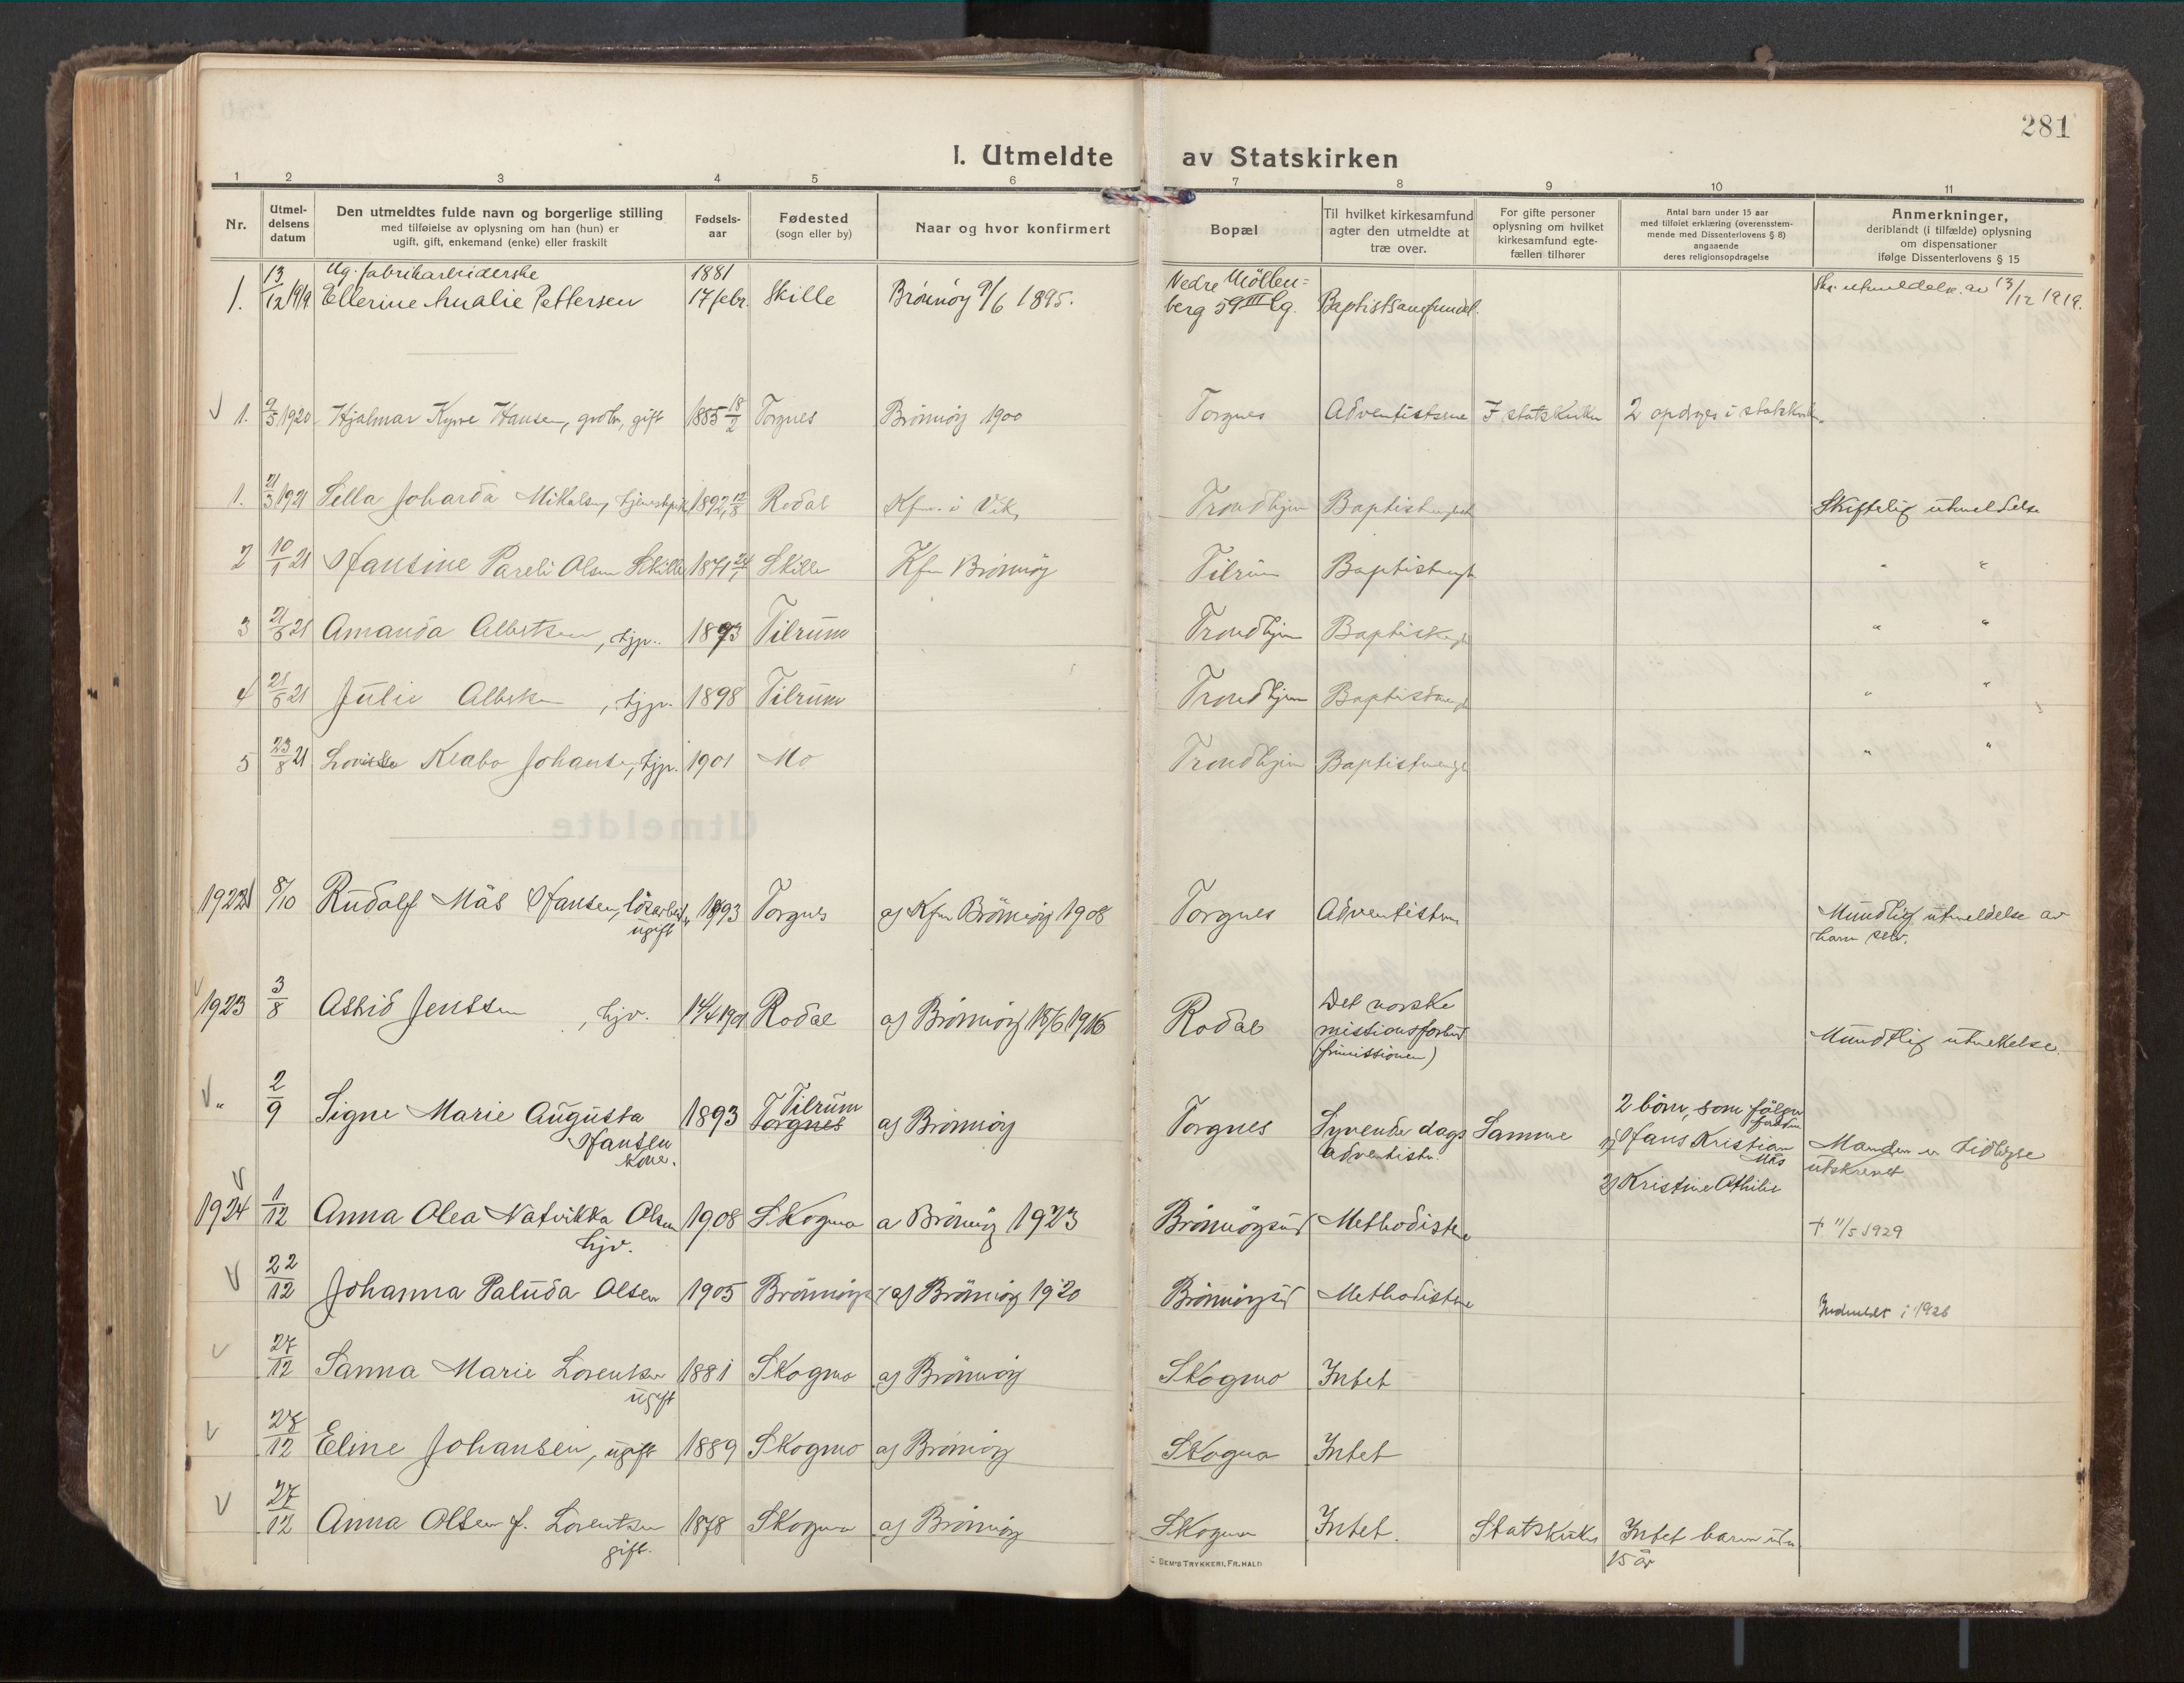 281
I. Utmeldte av Statskirken
1 2 3 4 5 6 7 8 9 10 11
Nr.
Utmel-
delsens
datum
Den utmeldtes fulde navn og borgerlige stilling
med tilføielse av oplysning om han (hun) er
ugift, gift, enkemand (enke) eller fraskilt
Fødsels-
aar
Fødested
(sogn eller by)
Naar og hvor konfirmert
Bopæl
Til hvilket kirkesamfund
agter den utmeldte at
træ over.
For gifte personer
oplysning om hvilket
kirkesamfund egte-
fællen tilhører
Antal barn under 15 aar
med tilføiet erklæring (overensstem-
mende med Dissenterlovens § 8)
angaaende
deres religionsopdragelse
Anmerkninger,
deriblandt (i tilfælde) oplysning
om dispensationer
ifølge Dissenterlovens § 15
13 Ug. fabrikarbeiderske 1881 Nedre Möllen-
1. 12 1919 Ellerine Amalie Pettersen 17 febr. Skille Brönnöy 9/6 1895. berg 59 III lg. Baptistsamfundet. utmeldelse av 13/12 1919.
1. 9/5 1920 Hjalmar Hansen, gift 1885 18/2 Torgnes Brönnöy 1900 Torgnes Adventistene I statskirken 2 opdrges i statskirken
1. 21/3 1921 Sella Joharda Mikalsen, 1892 12/8 Rodal Kfm. i Vik, Trondhjem Skriftelig utmeldelse
2 10/1 21 Hansine Pareli Olsen Skille 1871 24/1 Skille Kfm Brönnöy Tilrum " "
3 21/6 21 Amanda Albertsen, tjp. 1893 Tilrum Trondhjem " "
4 21/6 21 Julie Albertsen, tjp. 1898 Tilrum Trondhjem " "
5 23/8 21 Johansen, tjp. 1901 Mo Trondhjem " "
1922 8/10 Rudolf Mäs Hansen, lösarbeider 1893 Torgnes af Kfm Brönnöy 1908 Torgnes Adventistene Mundtlig utmeldelse av
ugift ham selv.
1923 3/8 Astrid Jenssen, tjv. 14/4 1901 Rodal af Brönnöy 18/6 1916 Rodal Det norske
missionsforbund
(frimissionen)
Mundtlig utmeldelse
" 2/9 Signe Marie Augusta 1893 Tilrum
Torgnes af Brönnöy Torgnes Syvende dags Samme 2 börn, som fölger
Hansen adventister. 1) Hans Kristian Manden er tidligere
kone. Mäs utskrevet
2) Kristine Othilie
1924 1/12 Anna Olea Natvikka Olsen 1908 Skogmo a Brönnöy 1923 Brönnöysund Methodistene † 11/5 1929
tjv.
22/12 Johanna Paluda Olsen 1905 af Brönnöy 1920 Brönnöysund Methodistene Indmeldt i 1926
27/12 Sanna Marie Lorentsen 1881 Skogmo af Brönnöy Skogmo Intet
ugift
28/12 Eline Johansen, ugift 1889 Skogmo af Brönnöy Skogmo Intet
27/12 Anna Olsen f. Lorentsen 1878 Skogmo af Brönnöy Skogmo Intet. Statskirken Intet barn under
gift. 15 år
DEM'S TRYKKERI, FR. HALD